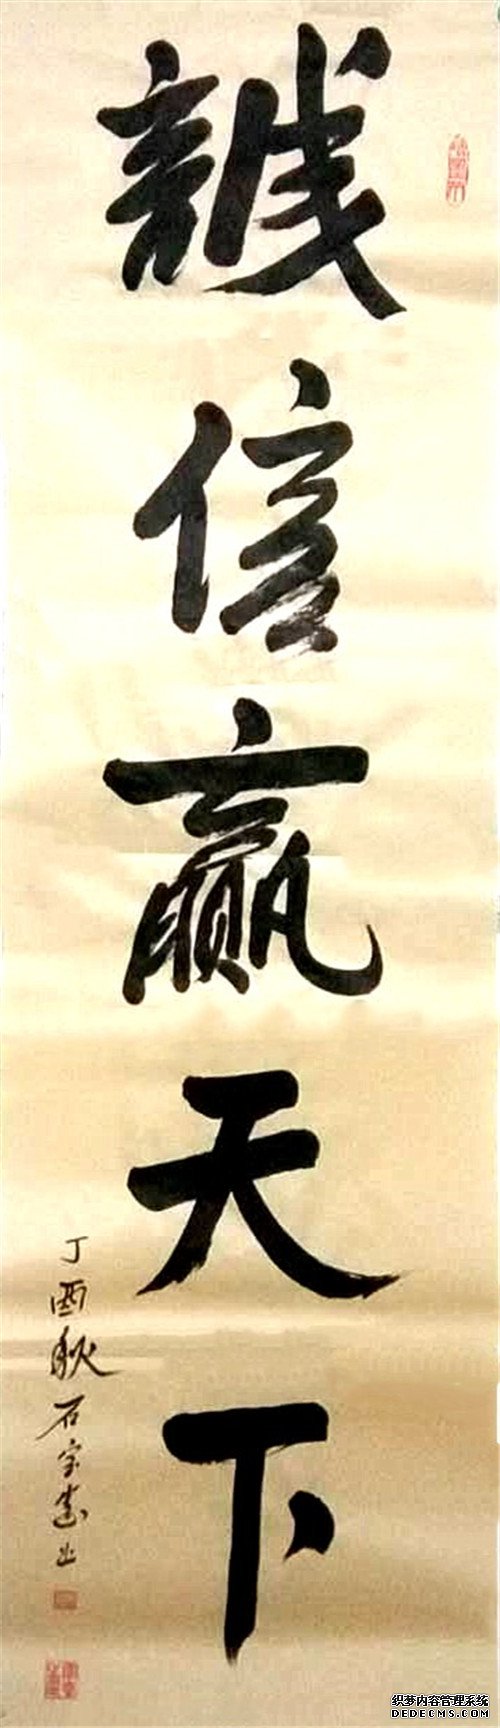 誠信贏天下
丁酉秋石
织梦内容管理系统
DEDECMS.COM